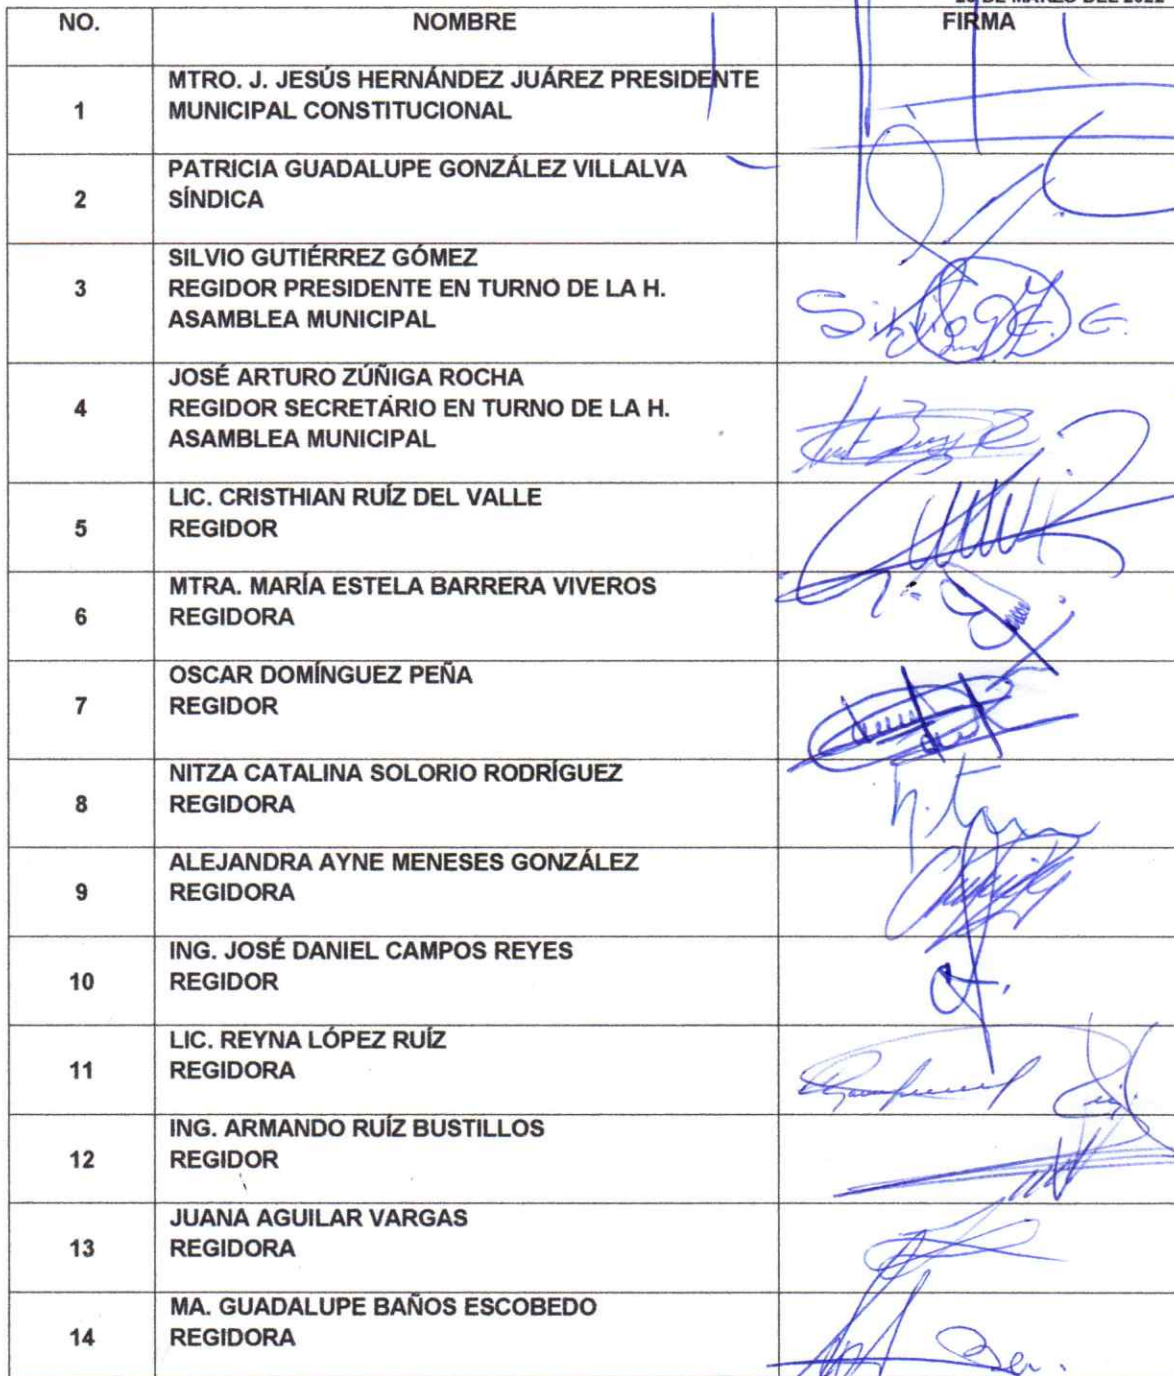 DE MARZO DEL 2022
NO. NOMBRE FIRMA
1 MTRO. J. JESÚS HERNÁNDEZ JUÁREZ PRESIDENTE
MUNICIPAL CONSTITUCIONAL
2 PATRICIA GUADALUPE GONZÁLEZ VILLALVA
SÍNDICA
3 SILVIO GUTIÉRREZ GÓMEZ
REGIDOR PRESIDENTE EN TURNO DE LA H.
ASAMBLEA MUNICIPAL
Silvio G. G.
4 JOSÉ ARTURO ZÚÑIGA ROCHA
REGIDOR SECRETÁRIO EN TURNO DE LA H.
ASAMBLEA MUNICIPAL
5 LIC. CRISTHIAN RUÍZ DEL VALLE
REGIDOR
6 MTRA. MARÍA ESTELA BARRERA VIVEROS
REGIDORA
7 OSCAR DOMÍNGUEZ PEÑA
REGIDOR
8 NITZA CATALINA SOLORIO RODRÍGUEZ
REGIDORA
9 ALEJANDRA AYNE MENESES GONZÁLEZ
REGIDORA
10 ING. JOSÉ DANIEL CAMPOS REYES
REGIDOR
11 LIC. REYNA LÓPEZ RUÍZ
REGIDORA
12 ING. ARMANDO RUÍZ BUSTILLOS
REGIDOR
13 JUANA AGUILAR VARGAS
REGIDORA
14 MA. GUADALUPE BAÑOS ESCOBEDO
REGIDORA